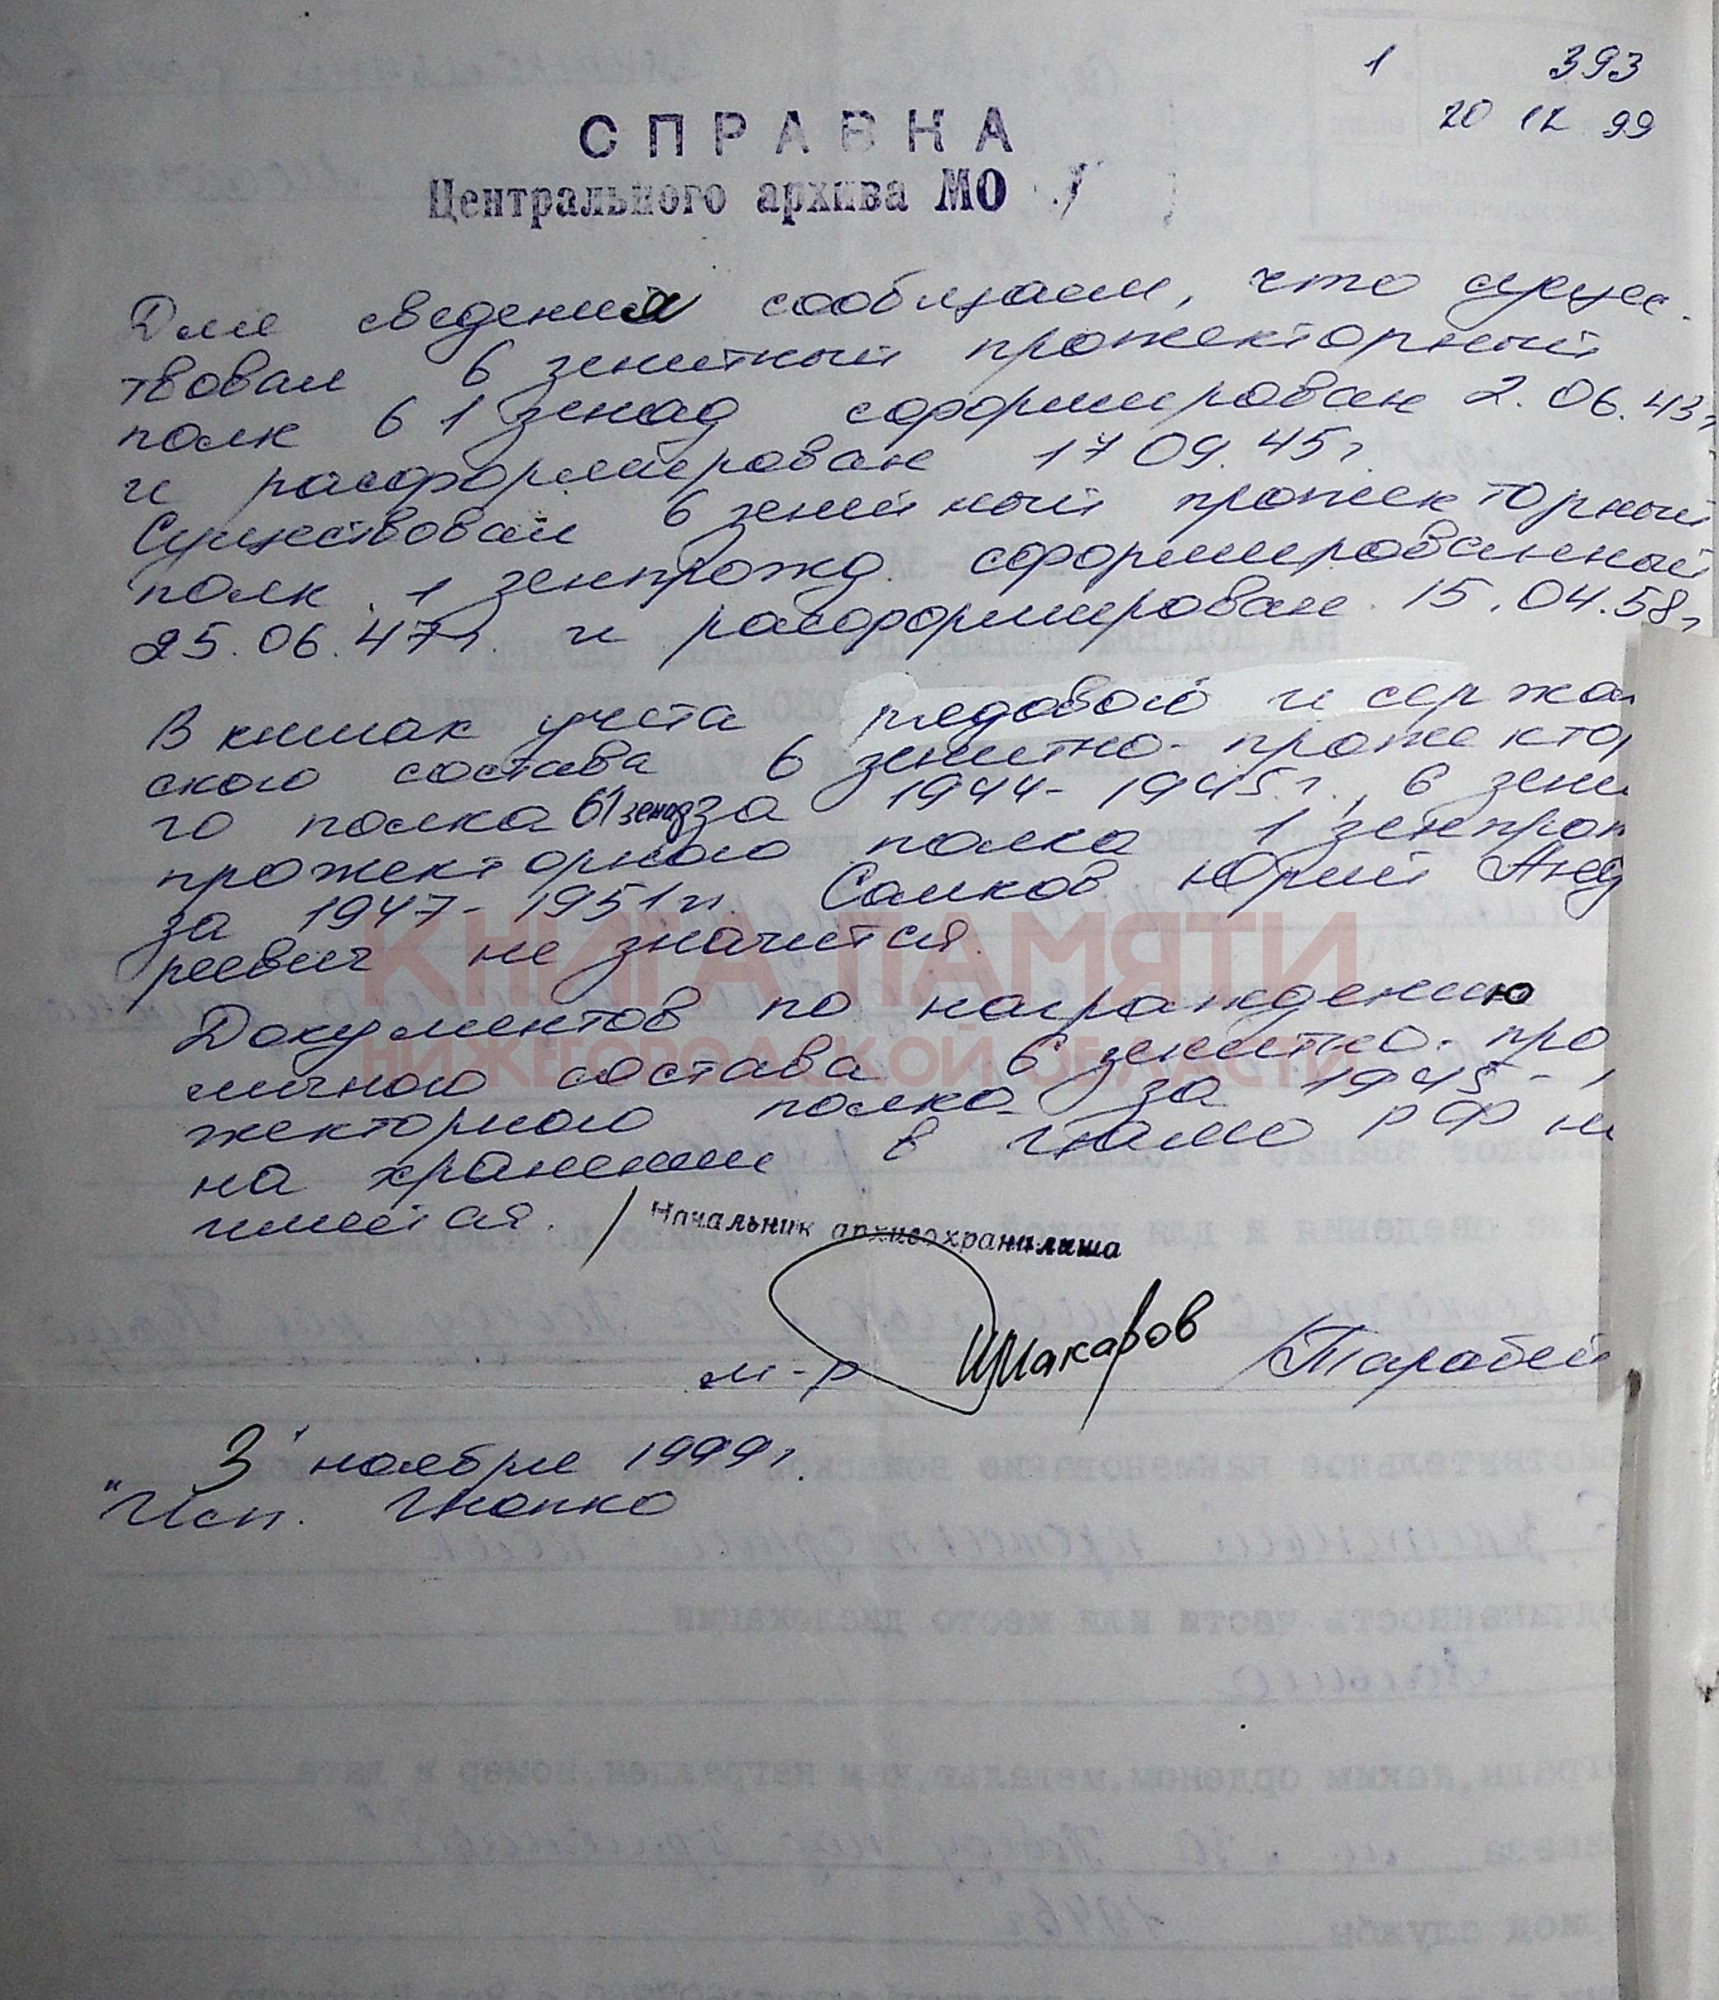 1 393
20 12 99
СПРАВКА
Центрального архива МО
Для сведения сообщаем, что сущес-
твовал 6 зенитный прожекторный
полк 61 зенад сформирован 2.06.43г
и расформирован 17 09.45г.
Существовал 6 зенитный прожекторный
полк 1 зенпрожд. сформированный
25.06.47г. и расформирован 15.04.58г
В книгах учета рядового и сержан
ского состава 6 зенитно-прожектор
го полка 61 зенад за 1944-1945г., 6 зени
прожекторного полка 1 зенпрож
за 1947-1951гг. Самков Юрий Анд
реевич не значится.
КНИГА ПАМЯТИ
Документов по награждению
личного состава 6 зенитно-про
НИЖЕГОРОДСКОЙ ОБЛАСТИ
жекторного полка за 1945-1
на хранении в ЦАМО РФ не
имеется.
Начальник архивохранилища
м-р Макаров Тарабей
"3" ноября 1999г.
Исп.